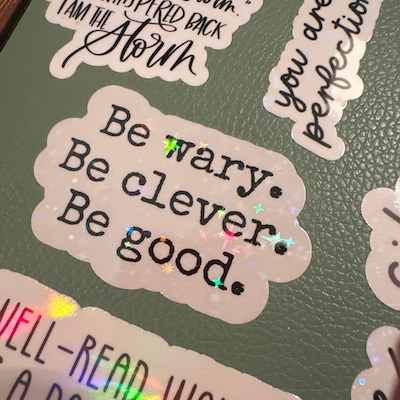 I AM THE
Storm
you are
perfection
Be wary.
Be clever.
Be good.
WELL-READ
A